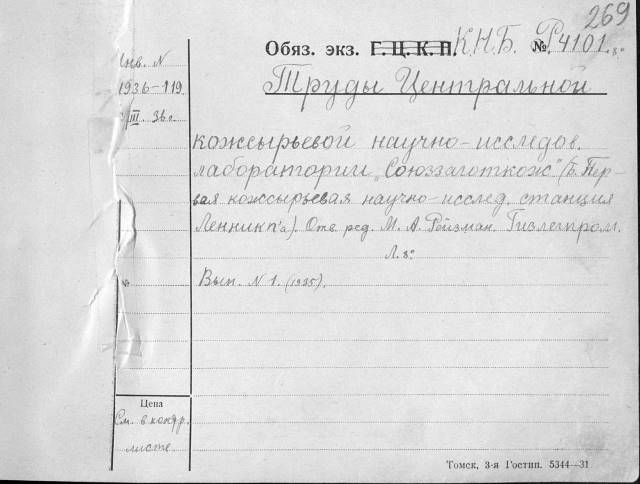 269
Обяз. экз. Г. Ц. К. П. К.Н.Б. № Р4101 8°
Инв. N
1936-119
III. 36г.
Труды Центральной
кожсырьевой научно-исследов.
лаборатории „Союззаготкож" (б. Пер-
вая кожсырьевая научно-исслед. станция
Ленникп'а). Отв. ред. М. А. Рейзман. Гизлегпром.
Л. 8°
Вып. N 1. (1935).
Цена
См. в контр.
листе.
Томск, 3-я Гостип. 5344—31